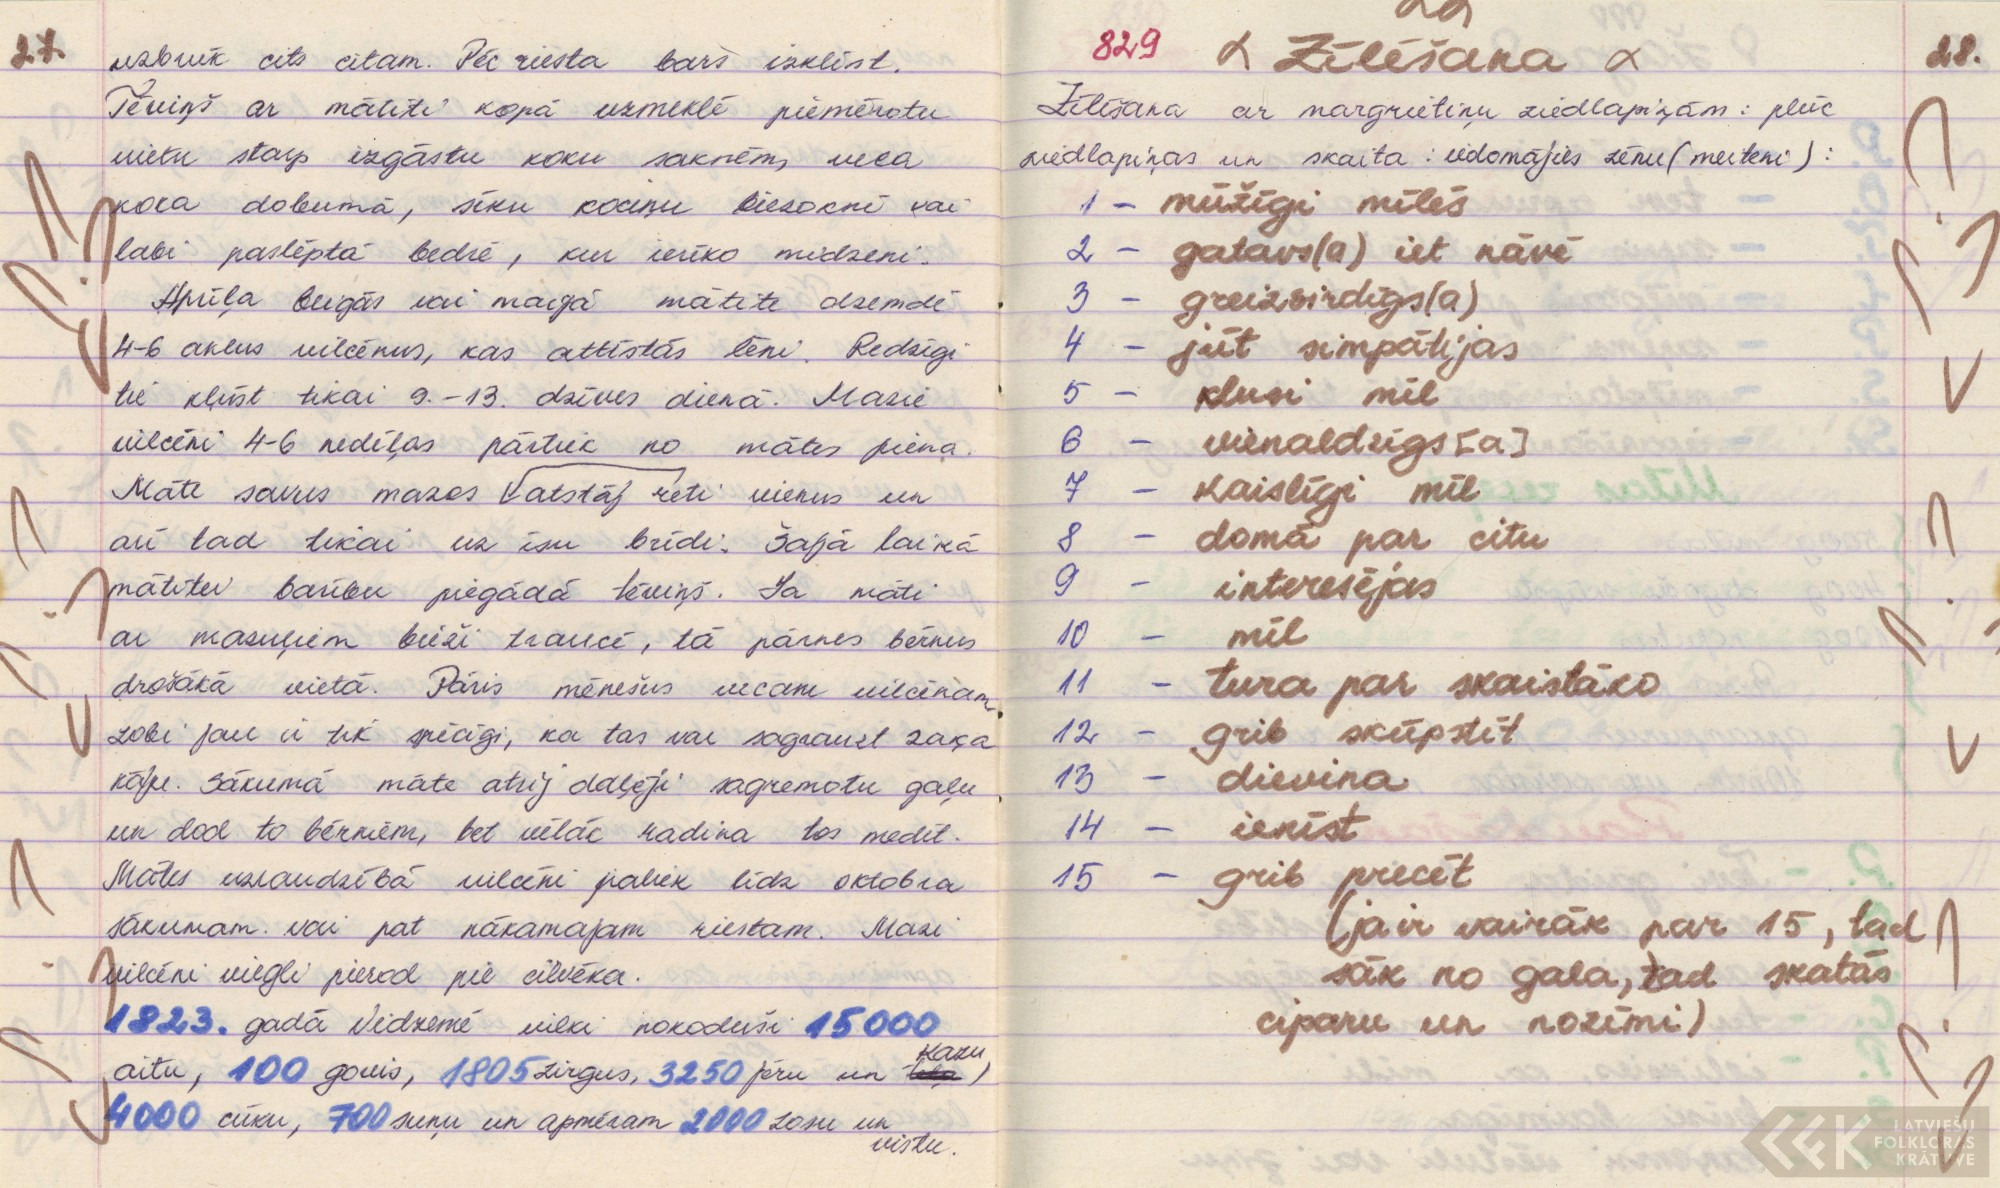 27.
uzbrūk cits citam. Pēc riesta bars izklīst.
Tēviņš ar mātīti kopā uzmeklē piemērotu
vietu starp izgāstu koku saknēm, veca
koka dobumā, sīku kociņu biezoknī vai
labi paslēptā bedrē, kur ierīko midzeni.
Aprīļa beigās vai maijā mātīte dzemdē
4-6 aklus vilcēnus, kas attīstās lēni. Redzīgi
tie kļūst tikai 9.-13. dzīves dienā. Mazie
vilcēni 4-6 nedēļas pārtiek no mātes piena.
Māte savus mazos atstāj reti vienus un
arī tad tikai uz īsu brīdi. Šajā laikā
mātītei barību piegādā tēviņš. Ja māti
ar mazuļiem bieži traucē, tā pārnes bērnus
drošākā vietā. Pāris mēnešus vecam vilcēnam
zobi jau ir tik spēcīgi, ka tas var sagrauzt zaķa
kāju. Sākumā māte atrij daļēji sagremotu gaļu
un dod to bērniem, bet vēlāk radina tos medīt.
Mātes uzraudzībā vilcēni paliek līdz oktobra
sākumam vai pat nākamajam riestam. Mazi
vilcēni viegli pierod pie cilvēka.
1823. gadā Vidzemē vilki nokoduši 15000
aitu, 100 govis, 1805 zirgus, 3250 jēru un kazu,
4000 cūku, 700 suņu un apmēram 2000 zosu un
vistu.
829 Zīlēšana 28.
Zīlēšana ar margrietiņu ziedlapiņām: plūc
ziedlapiņas un skaita: iedomājies zēnu (meiteni):
1 - mūžīgi mīlēs
2 - gatavs(a) iet nāvē
3 - greizsirdīgs(a)
4 - jūt simpātijas
5 - klusi mīl
6 - vienaldzīgs [a]
7 - kaislīgi mīl
8 - domā par citu
9 - interesējas
10 - mīl
11 - tura par skaistāko
12 - grib skūpstīt
13 - dievina
14 - ienīst
15 - grib precēt
(ja ir vairāk par 15, tad
sāk no gala, tad skatās
ciparu un nozīmi)
LATVIEŠU
FOLKLORAS
KRĀTUVE